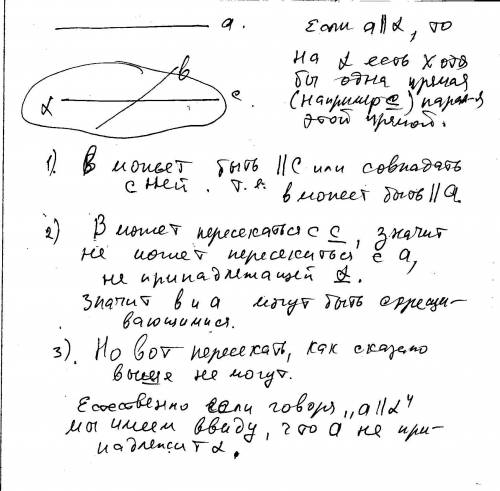 a. Если a∥α, то
на α есть хотя
бы одна прямая
(например с) парал-я
этой прямой.
в
α
с.
1). В может быть ∥ С или совпадать
с ней. т.е.
в может быть ∥ a
2) В может пересекаться с с, значит
не может пересекиться с а,
не принадлежащей α.
Значит в и а могут быть скрещи-
вающимися.
3). Но вот пересекать, как сказано
выше не могут.
Естественно если говоря „a∥α"
мы имеем ввиду, что а не при-
надлежит α.